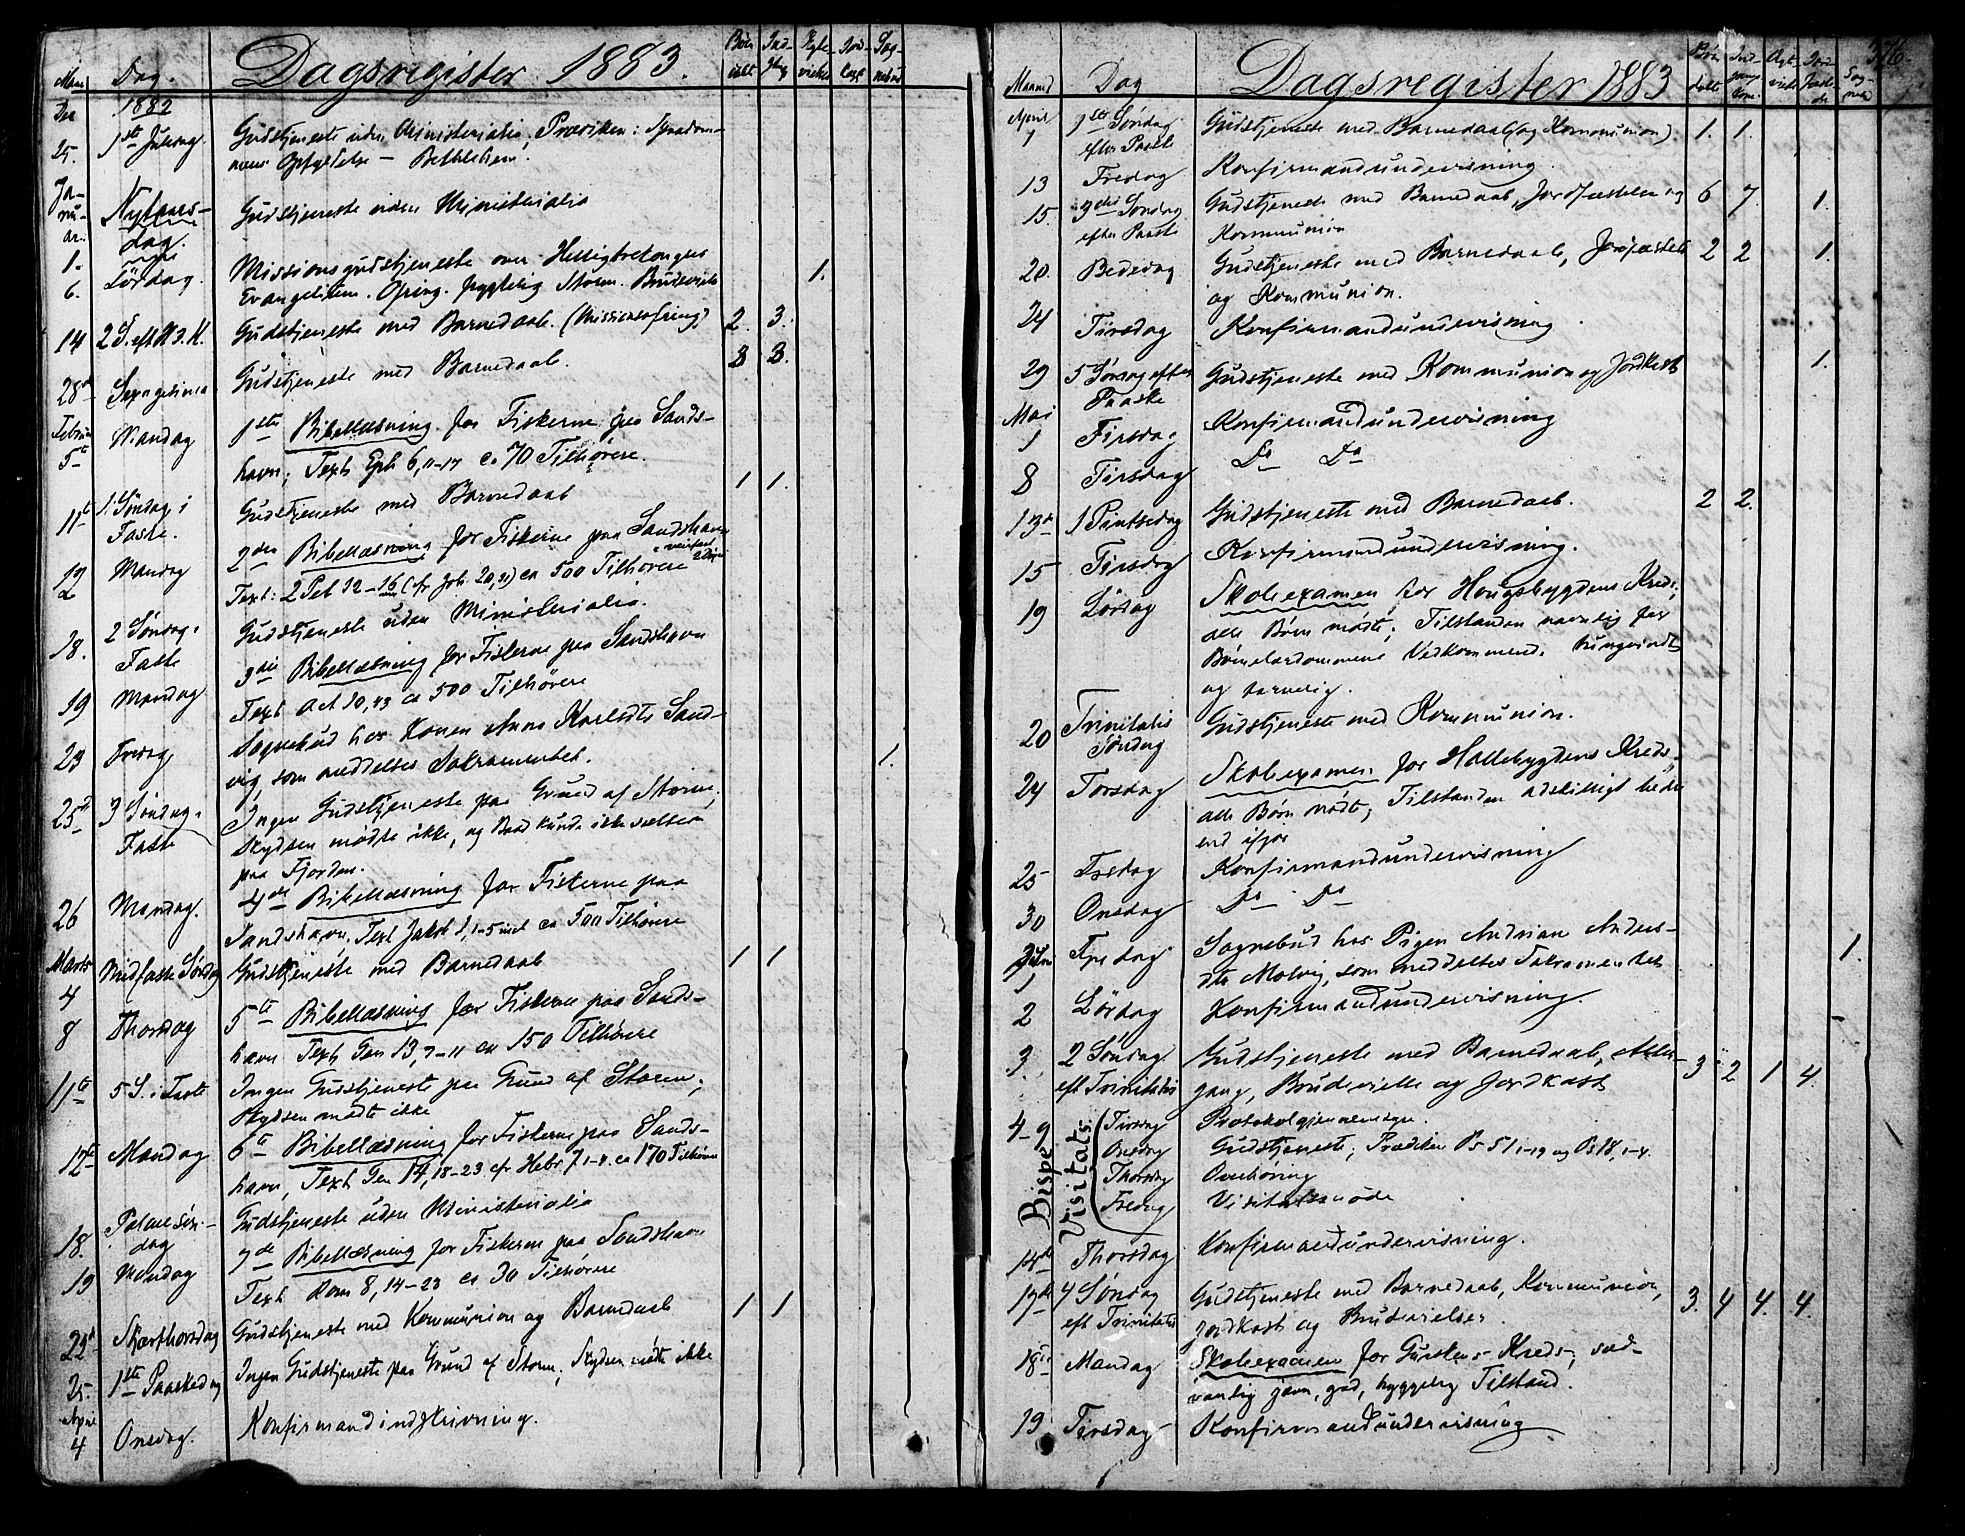 Dagsregister 1883.
Dag.
1882
25. 1ste Juledag. Gudstjeneste uden Ministerialia, Prædiken:
Opfyldelse — Bethlehem.
Januar
1. Nytaarsdag. Gudstjeneste uden Ministerialia
6. Lördag. Missionsgudstjeneste over Helligtrekonges 1.
Evangelium. Ofring. Storm.
14 2 S. eft H. 3. K. Gudstjeneste med Barnedaab. (Missionsofring) 2. 3.
28de Sexagesima Gudstjeneste med Barnedaab. 3 3.
5te Mandag 1ste Bibellæsning for Fiskerne paa Sands-
havn; Text Eph 6,11-17 ca 70 Tilhørere.
11te 1. Søndag i Gudstjeneste med Barnedaab 1 1.
Faste.
12 Mandag 2den Bibellæsning for Fiskerne paa Sandshavn
Text: 2 Pet 12-16 (cfr Joh. 20,31) ca 500 Tilhørere
18. 2 Søndag i Gudstjeneste uden Ministerialia.
Faste
19 Mandag 3die Bibellæsning for Fiskerne paa Sandshavn
Text Act 10,43 ca 500 Tilhørere
23 Fredag Sognebud hos Konen Anne Karlsdtr Sand-
vig, som meddeltes Sakramentet. 1.
25de 3 Søndag i Ingen Gudstjeneste paa Grund af Storm;
Faste Skydsen mødte ikke, og Baad kunde ikke sættes
paa Fjorden.
26 Mandag. 4de Bibellæsning for Fiskerne paa
Sandshavn. Text Jakob 1,1-5 incl ca 500 Tilhørere
Marts
4 Midfaste Søndag Gudstjeneste med Barnedaab 1 1
8 Thorsdag 5te Bibellæsning for Fiskerne paa Sands-
havn Text Gen 13,7-11 ca 150 Tilhørere
11te 5 S. i Faste Ingen Gudstjeneste paa Grund af Storm;
Skydsen mødte ikke
12te Mandag 6te Bibellæsning for Fiskerne paa Sands-
havn, Text Gen 14,18-23 cfr Hebr 7,1-4. ca 170 Tilhørere
18. Palmesøn- Gudstjeneste uden Ministerialia
dag
19 Mandag 7de Bibellæsning for Fiskerne paa Sandshavn
Text Rom 8,14-23 ca 30 Tilhørere
22de Skjærthorsdag Gudstjeneste med Kommunion og Barnedaab 1 1
25. 1ste Paaskedag Ingen Gudstjeneste paa Grund af Storm; Skydsen mødte ikke
April
4 Onsdag. Konfirmandindskrivning.
376.
Maaned Dag Dagsregister 1883
April
1 1ste Søndag Gudstjeneste med Barnedaab (og Kommunion) 1. 1.
efter Paaske
13 Fredag Konfirmandundervisning.
15 3die Søndag Gudstjeneste med Barnedaab, Jordfæstelse og 6 7 1.
efter Paaske Kommunion
20. Bededag Gudstjeneste med Barnedaab, Jordfæstelse 2 2 1.
og Kommunion.
24 Tirsdag Konfirmandundervisning
29 5 Søndag efter Gudstjeneste med Kommunion og Jordkast 1.
Paaske
Mai
1 Tirsdag Konfirmandundervisning
8 Tirsdag Do Do
13de 1 Pintsedag Gudstjeneste med Barnedaab. 2 2.
15 Tirsdag Konfirmandundervisning.
19 Lördag Skoleexamen for Haugsbygdens Kreds;
alle Børn mødte; Tilstanden navnlig for
Børnelærdommens Vedkommende tungvindt
og tarvelig.
20 Trinitatis Gudstjeneste med Kommunion.
Søndag
24 Torsdag Skoleexamen for Hallebygdens Kreds
alle Børn mødte; Tilstanden adskilligt bedre
end ifjor
25 Fredag Konfirmandundervisning
30 Onsdag Do Do
1 Fredag Sognebud hos Pigen Andrian Anders-
dtr Molvig, som meddeltes Sakramentet 1.
2 Lördag Konfirmandundervisning.
3 2 Søndag Gudstjeneste med Barnedaab, Alter-
eft Trinitatis gang, Brudevielse og Jordkast 3 2 1 4.
4-9 Bispe Visitats:
Tirsdag Protokolgjennemsyn.
Onsdag Gudstjeneste; Prædiken Ps 51,1-19 og Ps 18,1-4.
Thorsdag Overhøring
Fredag Visitatsmøde
14de Thorsdag Konfirmandundervisning.
17de 4 Søndag Gudstjeneste med Barnedaab, Kommunion,
eft Trinitatis Jordkast og Brudevielser. 3. 4 4. 4.
18de Mandag Skoleexamen for Gurskens Kreds; sæd-
vanlig jævn, god, hyggelig Tilstand.
19 Tirsdag Konfirmandundervisning